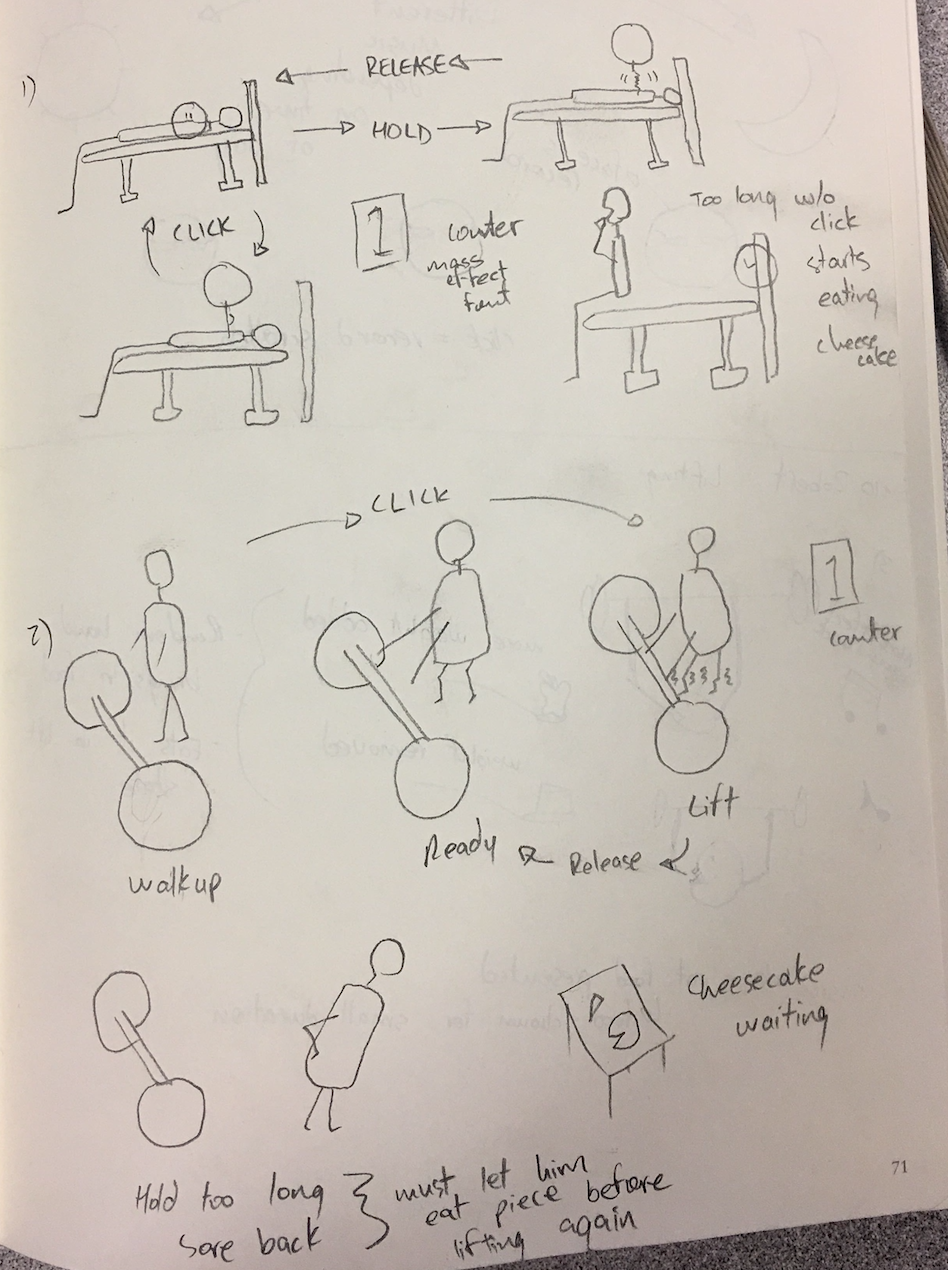 1)
RELEASE
HOLD
CLICK
1
counter
mass
effect
font
Too long w/o
click
starts
eating
cheese
cake
CLICK
2)
1
counter
Walkup
Ready
Release
Lift
Cheesecake
waiting
Hold too long
sore back
must let him
eat piece before
lifting again
71